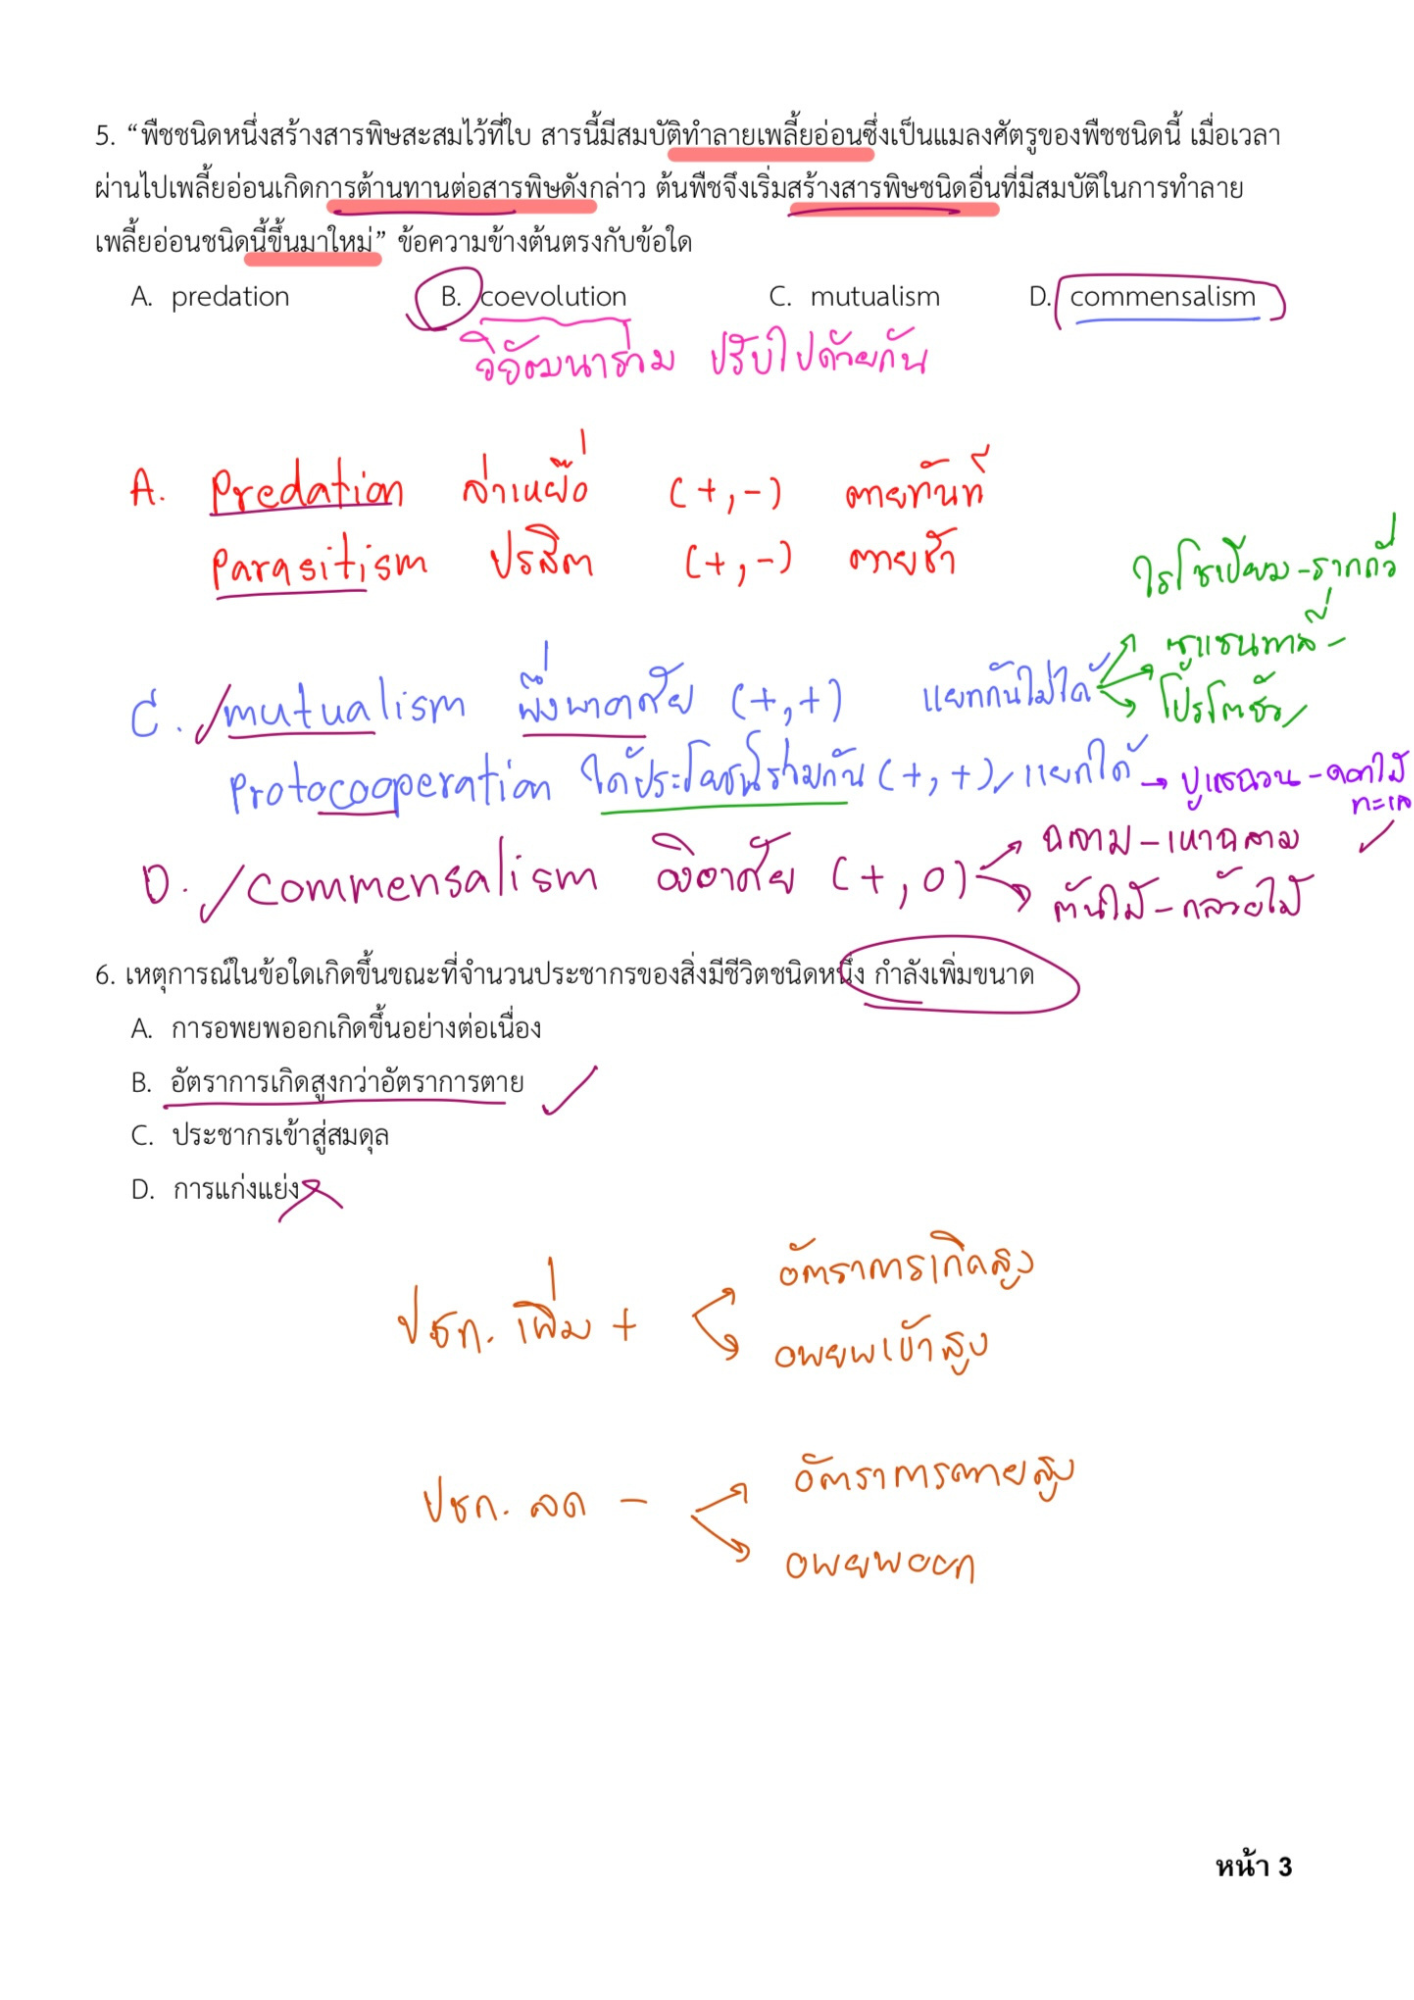 5. “พืชชนิดหนึ่งสร้างสารพิษสะสมไว้ที่ใบ สารนี้มีสมบัติทำลายเพลี้ยอ่อนซึ่งเป็นแมลงศัตรูของพืชชนิดนี้ เมื่อเวลา
ผ่านไปเพลี้ยอ่อนเกิดการต้านทานต่อสารพิษดังกล่าว ต้นพืชจึงเริ่มสร้างสารพิษชนิดอื่นที่มีสมบัติในการทำลาย
เพลี้ยอ่อนชนิดนี้ขึ้นมาใหม่” ข้อความข้างต้นตรงกับข้อใด
A. predation B. coevolution C. mutualism D. commensalism
วิวัฒนาร่วม ปรับไปด้วยกัน
A. Predation ล่าเหยื่อ (+,-) ตายทันที
Parasitism ปรสิต (+,-) ตายช้า
ไรโซเบียม - รากถั่ว
C. mutualism พึ่งพาอาศัย (+,+) แยกกันไม่ได้
โปรโตซัว
Protocooperation ได้ประโยชน์ร่วมกัน (+,+) แยกได้ → ปูเสฉวน - ดอกไม้
ทะเล
D. commensalism อิงอาศัย (+,0) ฉลาม - เหาฉลาม
ต้นไม้ - กล้วยไม้
6. เหตุการณ์ในข้อใดเกิดขึ้นขณะที่จำนวนประชากรของสิ่งมีชีวิตชนิดหนึ่ง กำลังเพิ่มขนาด
A. การอพยพออกเกิดขึ้นอย่างต่อเนื่อง
B. อัตราการเกิดสูงกว่าอัตราการตาย
C. ประชากรเข้าสู่สมดุล
D. การแก่งแย่ง
อัตราการเกิดสูง
ปชก. เพิ่ม +
อพยพเข้าสูง
อัตราการตายสูง
ปชก. ลด -
อพยพออก
หน้า 3